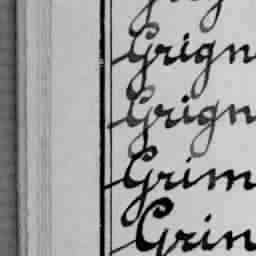 Grign
Grign
Grim
Grin